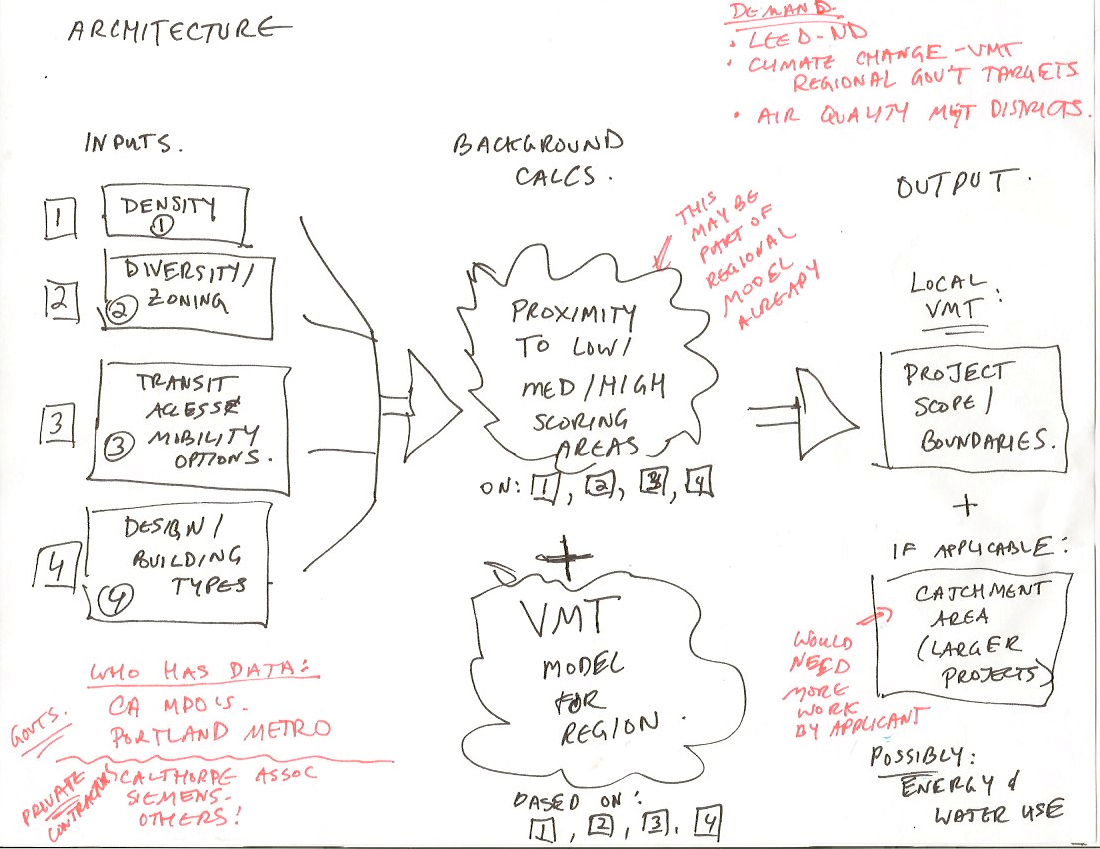 ARCHITECTURE
DEMAND.
• LEED-ND
• CLIMATE CHANGE - VMT
REGIONAL GOV'T TARGETS
• AIR QUALITY MGT DISTRICTS.
INPUTS.
1
DENSITY
1
2
DIVERSITY/
2 ZONING
3
TRANSIT
ACCESS
3 MOBILITY
OPTIONS.
4
DESIGN /
BUILDING
TYPES
4
WHO HAS DATA:
GOVTS.
CA MPO'S.
PORTLAND METRO
PRIVATE
CONTRACTORS
CALTHORPE ASSOC
SIEMENS -
OTHERS!
BACKGROUND
CALCS.
THIS
MAY BE
PART OF
REGIONAL
MODEL
ALREADY
PROXIMITY
TO LOW/
MED/HIGH
SCORING
AREAS
ON: 1, 2, 3, 4
+
VMT
MODEL
FOR
REGION.
BASED ON:
1, 2, 3, 4
OUTPUT.
LOCAL
VMT:
PROJECT
SCOPE/
BOUNDARIES.
+
IF APPLICABLE:
CATCHMENT
AREA
(LARGER
PROJECTS)
WOULD
NEED
MORE
WORK
BY APPLICANT
POSSIBLY:
ENERGY &
WATER USE